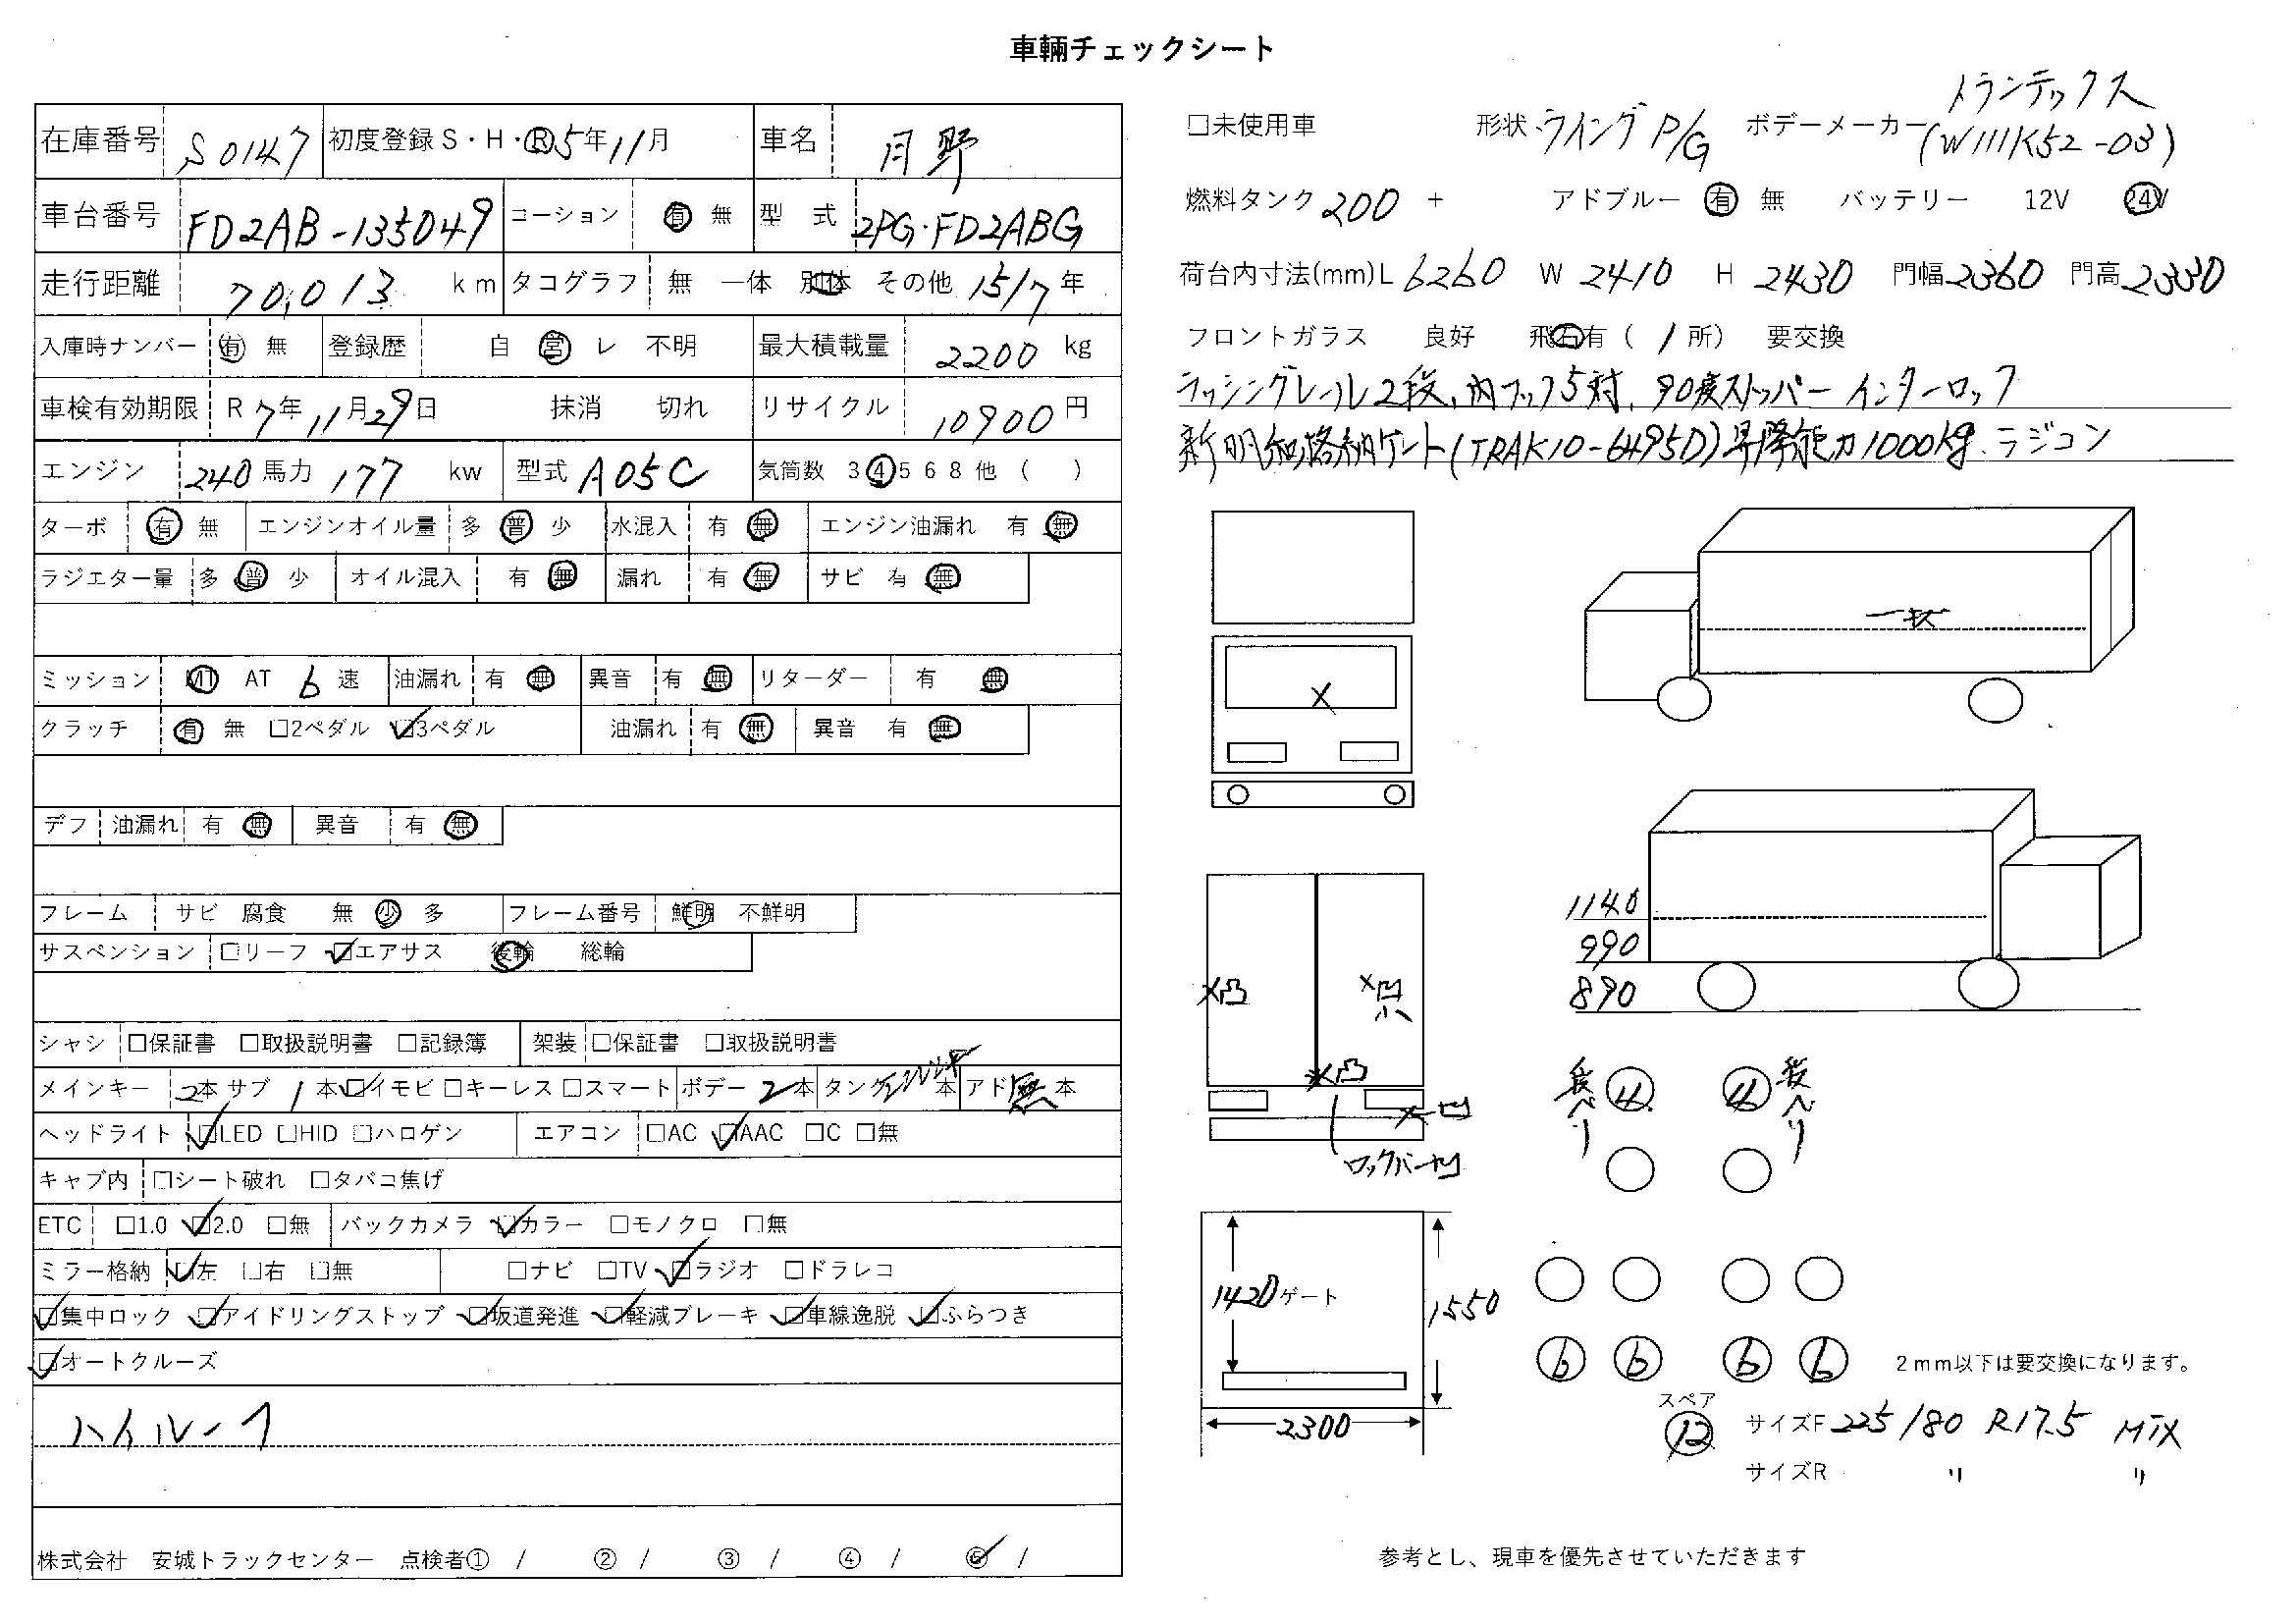 車輛チェックシート
在庫番号 S0147 初度登録 S・H・R 5年11月 車名 日野
車台番号 FD2AB-135049 コーション 有 無 型式 2PG-FD2ABG
走行距離 70,013 km タコグラフ 無 一体 別体 その他 15/7年
入庫時ナンバー 有 無 登録歴 自 営 レ 不明 最大積載量 2200 kg
車検有効期限 R7年11月29日 抹消 切れ リサイクル 10900円
エンジン 240馬力 177 kw 型式 A05C 気筒数 3 4 5 6 8 他 ( )
ターボ 有 無 エンジンオイル量 多 普 少 水混入 有 無 エンジン油漏れ 有 無
ラジエター量 多 普 少 オイル混入 有 無 漏れ 有 無 サビ 有 無
ミッション MT AT 6速 油漏れ 有 無 異音 有 無 リターダー 有 無
クラッチ 有 無 □2ペダル ☑3ペダル 油漏れ 有 無 異音 有 無
デフ 油漏れ 有 無 異音 有 無
フレーム サビ 腐食 無 少 多 フレーム番号 鮮明 不鮮明
サスペンション □リーフ ☑エアサス 後輪 総輪
シャシ □保証書 □取扱説明書 □記録簿 架装 □保証書 □取扱説明書
メインキー 2本 サブ 1本 ☑イモビ □キーレス □スマート ボデー 2本 タンク 本 アド 無 本
ヘッドライト ☑LED □HID □ハロゲン エアコン □AC ☑AAC □C □無
キャブ内 □シート破れ □タバコ焦げ
ETC □1.0 ☑2.0 □無 バックカメラ ☑カラー □モノクロ □無
ミラー格納 ☑左 □右 □無 □ナビ □TV ☑ラジオ □ドラレコ
☑集中ロック ☑アイドリングストップ ☑坂道発進 ☑軽減ブレーキ ☑車線逸脱 ☑ふらつき
☑オートクルーズ
ハイルーフ
株式会社 安城トラックセンター 点検者① / ② / ③ / ④ / ⑤ /
トランテックス
□未使用車 形状 ウイングP/G ボデーメーカー (W111K52-03)
燃料タンク 200 + アドブルー 有 無 バッテリー 12V 24V
荷台内寸法(mm) L 6260 W 2410 H 2430 門幅 2360 門高 2330
フロントガラス 良好 飛石有 ( 1所) 要交換
ラッシングレール2段、内フック5対、90度ストッパー インターロック
新明和格納ゲート(TRAK10-6495D)昇降能力1000kg、ラジコン
一枚
X
1140
990
890
X凸 X凹小
X凸
X凹
ロックバー凹
段べり 4 4 段べり
1420 ゲート 1550
2300
6 6 6 6 2mm以下は要交換になります。
スペア
12 サイズF 225/80 R17.5 MIX
サイズR 〃 〃
参考とし、現車を優先させていただきます